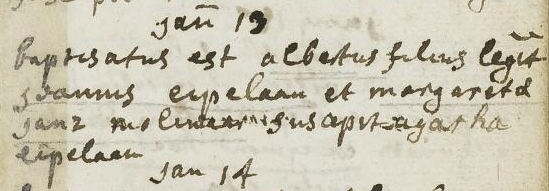 jan 13
baptisatus est albertus filius legit
joannis eipelaan et margareta
janz molenaar susapit agatha
eipelaan
jan 14